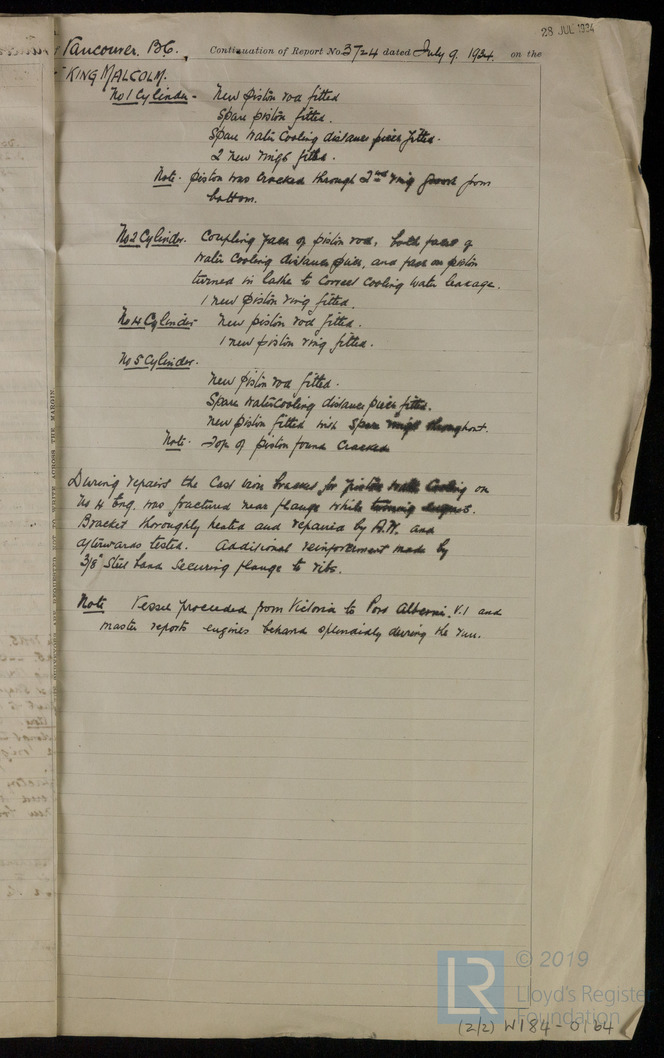 28 JUL 1934
Vancouver. B.C. Continuation of Report No. 3724 dated July 9. 1934. on the
KING MALCOLM.
No 1 Cylinder - New piston rod fitted
Spare piston fitted.
Spare water cooling distance piece fitted.
2 new rings fitted.
Note. piston was cracked through 2nd ring groove from
bottom.
No 2 Cylinder. Coupling face of piston rod, both faces of
water cooling distance piece, and face on piston
turned in lathe to correct cooling water leakage.
1 new piston ring fitted.
No 4 Cylinder New piston rod fitted.
1 new piston ring fitted.
No 5 Cylinder.
New piston rod fitted.
Spare water cooling distance piece fitted.
New piston fitted with spare rings throughout.
Note. Top of piston found cracked
During repairs the Cast iron bracket for piston water cooling on
No 4 Eng. was fractured near flange while turning engines.
Bracket thoroughly heated and repaired by A.W. and
afterwards tested. Additional reinforcement made by
3/8" Steel band securing flange to ribs.
Note Vessel proceeded from Victoria to Port Alberni. V.I and
master reports engines behaved splendidly during the run.
LR © 2019
Lloyd's Register
Foundation
(2/2) W184-0164